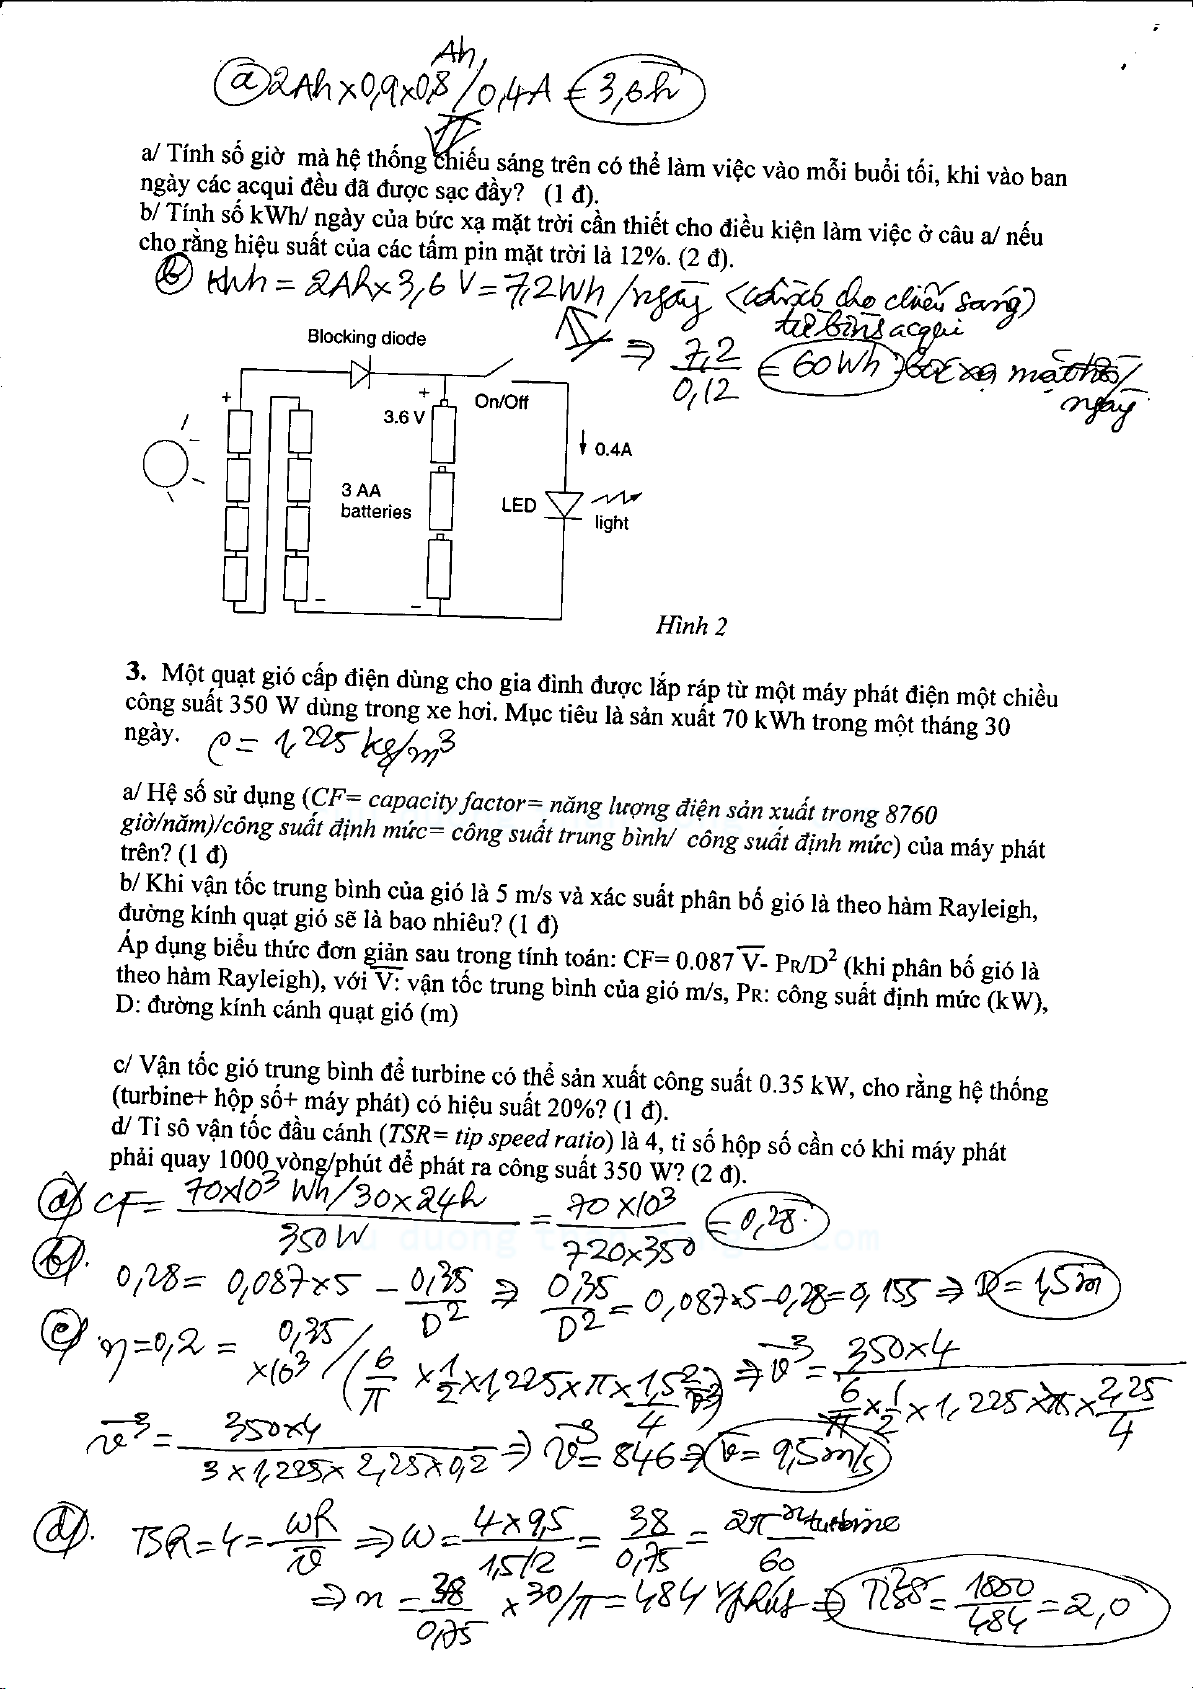 ⓐ 2Ah x 0,9 x 0,8 Ah / 0,4A = 3,6h
a/ Tính số giờ mà hệ thống chiếu sáng trên có thể làm việc vào mỗi buổi tối, khi vào ban
ngày các acqui đều đã được sạc đầy? (1 đ).
b/ Tính số kWh/ ngày của bức xạ mặt trời cần thiết cho điều kiện làm việc ở câu a/ nếu
cho rằng hiệu suất của các tấm pin mặt trời là 12%. (2 đ).
ⓑ kWh = 2Ah x 3,6 V = 7,2Wh /ngày (cho chiếu sáng)
từ bình acqui
⇒ 7,2 / 0,12 = 60Wh bức xạ mặt trời/
ngày
Blocking diode
+
+
3.6 V
On/Off
0.4A
3 AA
batteries
LED
light
−
−
Hình 2
3. Một quạt gió cấp điện dùng cho gia đình được lắp ráp từ một máy phát điện một chiều
công suất 350 W dùng trong xe hơi. Mục tiêu là sản xuất 70 kWh trong một tháng 30
ngày. ρ = 1,225 kg/m³
a/ Hệ số sử dụng (CF= capacity factor= năng lượng điện sản xuất trong 8760
giờ/năm)/công suất định mức= công suất trung bình/ công suất định mức) của máy phát
trên? (1 đ)
b/ Khi vận tốc trung bình của gió là 5 m/s và xác suất phân bố gió là theo hàm Rayleigh,
đường kính quạt gió sẽ là bao nhiêu? (1 đ)
Áp dụng biểu thức đơn giản sau trong tính toán: CF= 0.087 V̅- PR/D² (khi phân bố gió là
theo hàm Rayleigh), với V̅: vận tốc trung bình của gió m/s, PR: công suất định mức (kW),
D: đường kính cánh quạt gió (m)
c/ Vận tốc gió trung bình để turbine có thể sản xuất công suất 0.35 kW, cho rằng hệ thống
(turbine+ hộp số+ máy phát) có hiệu suất 20%? (1 đ).
d/ Tỉ sô vận tốc đầu cánh (TSR= tip speed ratio) là 4, tỉ số hộp số cần có khi máy phát
phải quay 1000 vòng/phút để phát ra công suất 350 W? (2 đ).
a/ CF = 70x10³ Wh/30x24h / 350W = 70x10³ / 720x350 = 0,28
b/. 0,28 = 0,087x5 − 0,35/D² ⇒ 0,35/D² = 0,087x5−0,28=0,155 ⇒ D = 1,5m
c/ η=0,2 = 0,35 x10³ / (6/π x 1/2 x 1,225 x π x 1,5²/4 v̅³) ⇒ v̅³ = 350x4 / 6/π x 1/2 x 1,225 x π x 2,25/4
v̅³ = 350x4 / 3x1,225x 2,25x0,2 ⇒ v̅³ = 846 ⇒ v̅ = 9,5m/s
d/. TSR = 4 = ωR/v̅ ⇒ ω = 4x9,5 / 1,5/2 = 38/0,75 = 2π n turbine / 60
⇒ n = 38/0,75 x 30/π = 484 v/phút ⇒ Tỉ số = 1000/484 = 2,0